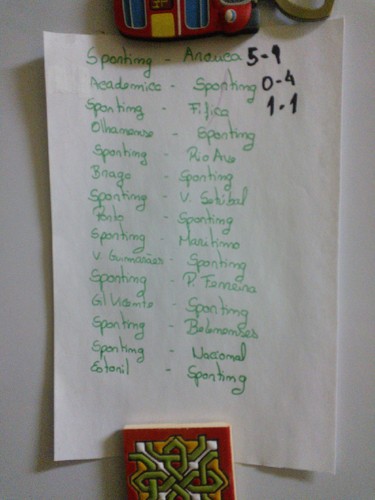 Sporting - Arouca 5-1
Academica - Sporting 0-4
Sporting - Fifica 1-1
Olhanense - Sporting
Sporting - Rio Ave
Braga - Sporting
Sporting - V. Setúbal
Porto - Sporting
Sporting - Maritimo
V. Guimarães - Sporting
Sporting - P. Ferreira
Gil Vicente - Sporting
Sporting - Belenenses
Sporting - Nacional
Estoril - Sporting